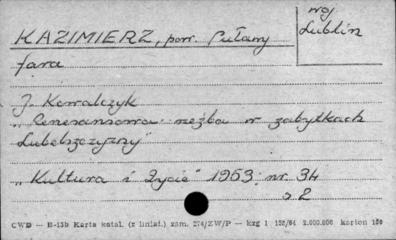 KAZIMIERZ, pow. Puławy
woj
Lublin
fara
J. Kowalczyk
"Renesansowa rzeźba w zabytkach
Lubelszczyzny"
"Kultura i Życie" 1963, nr. 34
s. 2
CWD — E-13b Karta katal. (z liniat.) zam. 274/ZW/P — kzg 1 2.000.000 karton